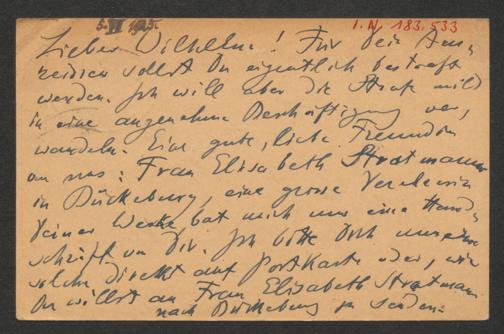 5. VI 1925.
I.N. 183.533
Lieber Wilhelm! Für dein
sollst Du eigentlich bestraft
werden. Ich will aber die Strafe mild
in eine angenehme Beschäftigung ver,
wandeln. Eine gute, liebe Freundin
von uns: Frau Elisabeth Stratmann
in Bückeburg, eine grosse Verehrerin
Deiner Werke, bat mich um eine Hand-
schrift von Dir. Ich bitte Dich
solche direkt auf Postkarte oder, wie
Du willst an Frau Elisabeth Stratmann
nach Bückeburg zu senden.